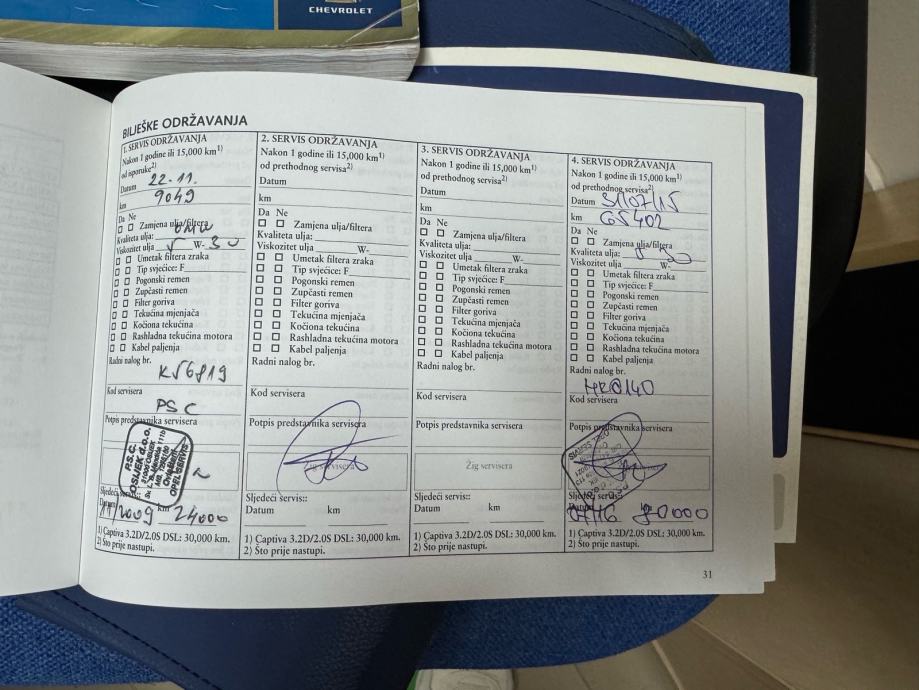 CHEVROLET
BILJEŠKE ODRŽAVANJA
1. SERVIS ODRŽAVANJA
Nakon 1 godine ili 15,000 km1)
od isporuke2)
Datum 22.11.
km 9049
Da Ne
Zamjena ulja/filtera
Kvaliteta ulja:
Viskozitet ulja 5 W-30
Umetak filtera zraka
Tip svjećice: F
Pogonski remen
Zupčasti remen
Filter goriva
Tekućina mjenjača
Kočiona tekućina
Rashladna tekućina motora
Kabel paljenja
Radni nalog br.
KS6819
Kod servisera
PSC
Potpis predstavnika servisera
P.S.C.
OSIJEK d.o.o.
31000 OSIJEK
OPEL SERVIS
Sljedeći servis::
Datum km
11/2009 24000
1) Captiva 3.2D/2.0S DSL: 30,000 km.
2) Što prije nastupi.
2. SERVIS ODRŽAVANJA
Nakon 1 godine ili 15,000 km1)
od prethodnog servisa2)
Datum
km
Da Ne
Zamjena ulja/filtera
Kvaliteta ulja:
Viskozitet ulja W-
Umetak filtera zraka
Tip svjećice: F
Pogonski remen
Zupčasti remen
Filter goriva
Tekućina mjenjača
Kočiona tekućina
Rashladna tekućina motora
Kabel paljenja
Radni nalog br.
Kod servisera
Potpis predstavnika servisera
Žig servisera
Sljedeći servis::
Datum km
1) Captiva 3.2D/2.0S DSL: 30,000 km.
2) Što prije nastupi.
3. SERVIS ODRŽAVANJA
Nakon 1 godine ili 15,000 km1)
od prethodnog servisa2)
Datum
km
Da Ne
Zamjena ulja/filtera
Kvaliteta ulja:
Viskozitet ulja W-
Umetak filtera zraka
Tip svjećice: F
Pogonski remen
Zupčasti remen
Filter goriva
Tekućina mjenjača
Kočiona tekućina
Rashladna tekućina motora
Kabel paljenja
Radni nalog br.
Kod servisera
Potpis predstavnika servisera
Žig servisera
Sljedeći servis::
Datum km
1) Captiva 3.2D/2.0S DSL: 30,000 km.
2) Što prije nastupi.
4. SERVIS ODRŽAVANJA
Nakon 1 godine ili 15,000 km1)
od prethodnog servisa2)
Datum 31/07/15
km 65402
Da Ne
Zamjena ulja/filtera
Kvaliteta ulja: 5 30
Viskozitet ulja W-
Umetak filtera zraka
Tip svjećice: F
Pogonski remen
Zupčasti remen
Filter goriva
Tekućina mjenjača
Kočiona tekućina
Rashladna tekućina motora
Kabel paljenja
Radni nalog br.
HR0140
Kod servisera
Potpis predstavnika servisera
Sljedeći servis::
07/16 80000
1) Captiva 3.2D/2.0S DSL: 30,000 km.
2) Što prije nastupi.
31